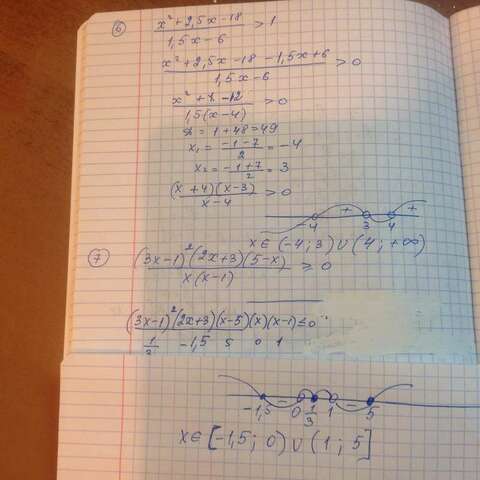 6 (x² + 2,5x - 18)/(1,5x - 6) > 1
(x² + 2,5x - 18 - 1,5x + 6)/(1,5x - 6) > 0
(x² + x - 12)/(1,5(x - 4)) > 0
D = 1 + 48 = 49
x₁ = (-1 - 7)/2 = -4
x₂ = (-1 + 7)/2 = 3
((x + 4)(x - 3))/(x - 4) > 0
-4 + 3 4 +
x ∈ (-4; 3) ∪ (4; +∞)
7 ((3x - 1)²(2x + 3)(5 - x))/(x(x - 1)) ≥ 0
(3x - 1)²(2x + 3)(x - 5)(x)(x - 1) ≤ 0
1/3 -1,5 5 0 1
-1,5 - 0 1/3 1 - 5
x ∈ [-1,5; 0) ∪ (1; 5]